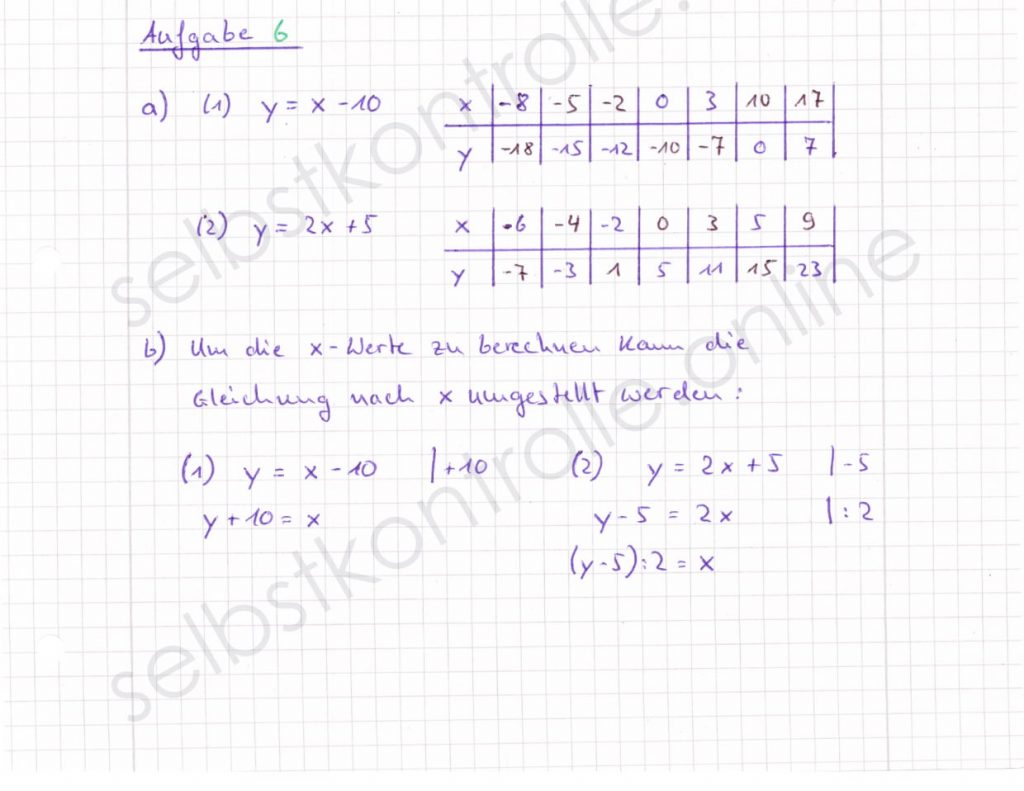 Aufgabe 6
a) (1) y = x - 10
x | -8 | -5 | -2 | 0 | 3 | 10 | 17
y | -18 | -15 | -12 | -10 | -7 | 0 | 7
(2) y = 2x + 5
x | -6 | -4 | -2 | 0 | 3 | 5 | 9
y | -7 | -3 | 1 | 5 | 11 | 15 | 23
b) Um die x-Werte zu berechnen kann die
Gleichung nach x umgestellt werden:
(1) y = x - 10 | +10
y + 10 = x
(2) y = 2x + 5 | -5
y - 5 = 2x | : 2
(y - 5) : 2 = x
selbstkontrolle.
selbstkontrolle.online